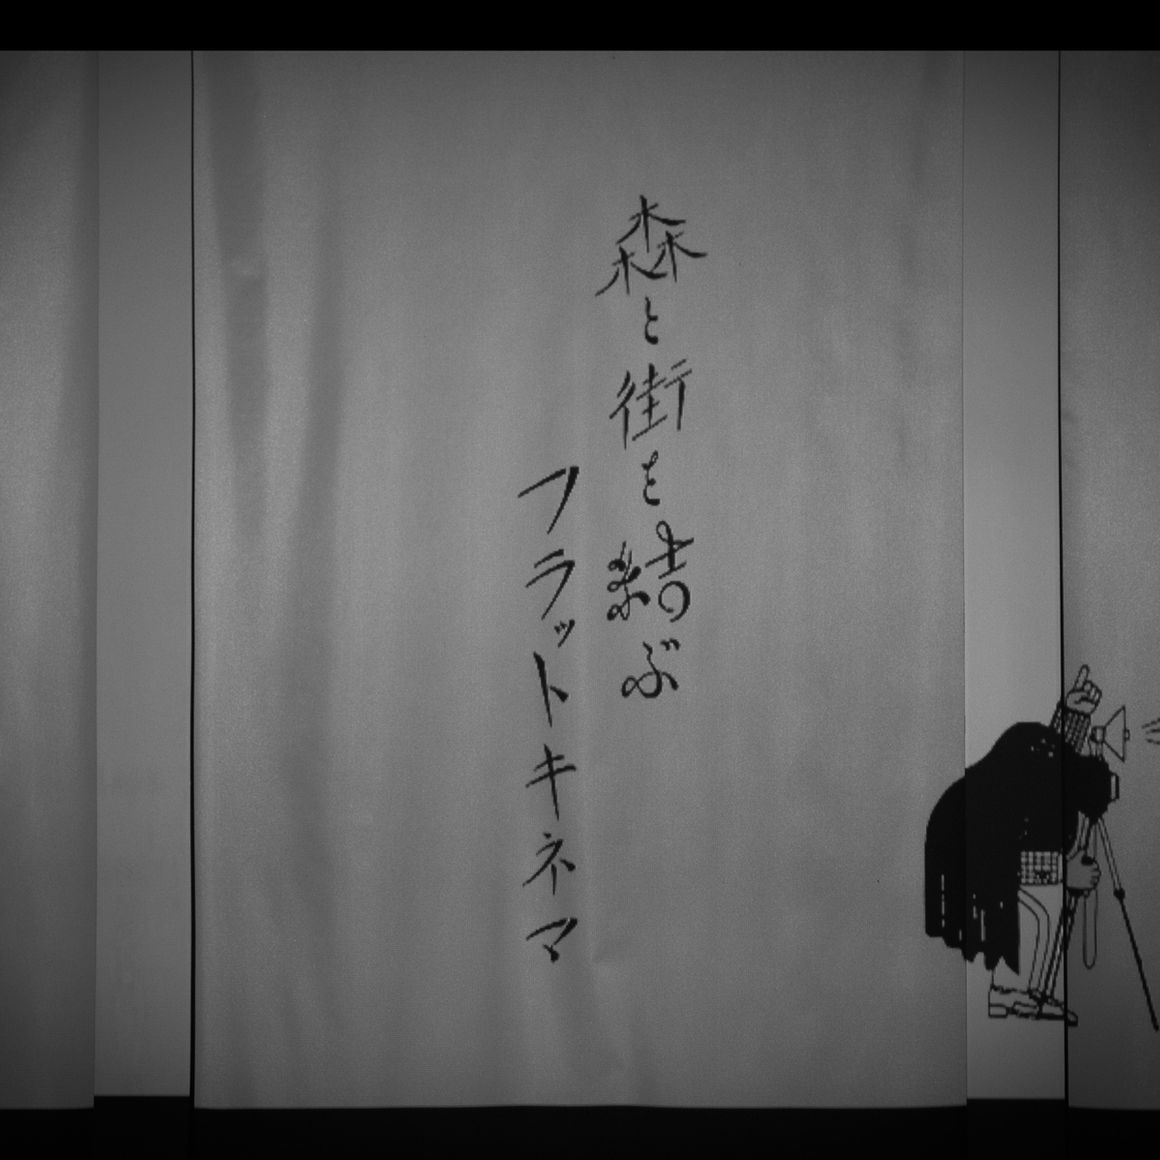 森と街を結ぶ
フラットキネマ